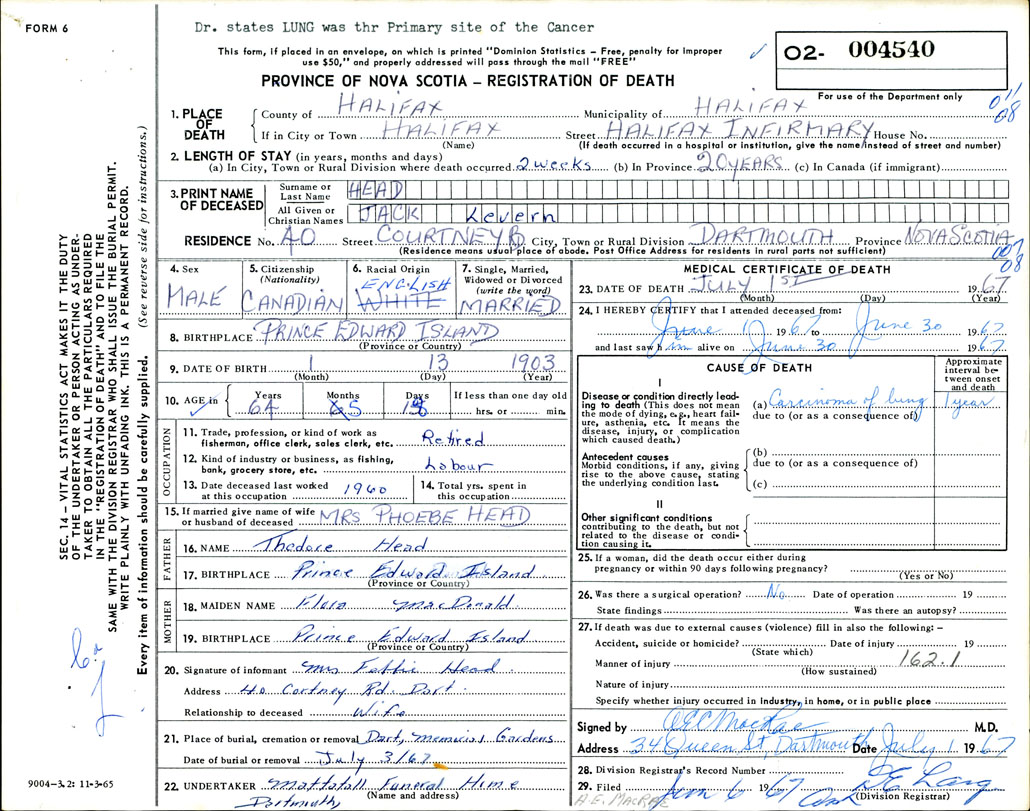 FORM 6
Dr. states LUNG was thr Primary site of the Cancer
This form, if placed in an envelope, on which is printed "Dominion Statistics – Free, penalty for improper
use $50," and properly addressed will pass through the mail "FREE"
02- 004540
For use of the Department only
PROVINCE OF NOVA SCOTIA – REGISTRATION OF DEATH
011
08
1. PLACE OF DEATH
County of HALIFAX Municipality of HALIFAX
If in City or Town HALIFAX Street HALIFAX INFIRMARY House No.
(Name) (If death occurred in a hospital or institution, give the name instead of street and number)
2. LENGTH OF STAY (in years, months and days)
(a) In City, Town or Rural Division where death occurred 2 weeks (b) In Province 20 YEARS (c) In Canada (if immigrant)
3. PRINT NAME OF DECEASED
Surname or Last Name HEAD
All Given or Christian Names JACK Levern
RESIDENCE No. 40 Street COURTNEY RD City, Town or Rural Division DARTMOUTH Province NOVA SCOTIA
(Residence means usual place of abode. Post Office Address for residents in rural parts not sufficient)
08
4. Sex MALE
5. Citizenship (Nationality) CANADIAN
6. Racial Origin ENGLISH WHITE
7. Single, Married, Widowed or Divorced (write the word) MARRIED
8. BIRTHPLACE PRINCE EDWARD ISLAND
(Province or Country)
9. DATE OF BIRTH 1 13 1903
(Month) (Day) (Year)
10. AGE in Years Months Days If less than one day old
64 5 18 hrs. or min.
OCCUPATION
11. Trade, profession, or kind of work as
fisherman, office clerk, sales clerk, etc. Retired
12. Kind of industry or business, as fishing,
bank, grocery store, etc. Labour
13. Date deceased last worked
at this occupation 1960
14. Total yrs. spent in
this occupation
15. If married give name of wife
or husband of deceased MRS PHOEBE HEAD
FATHER
16. NAME Thedore Head
17. BIRTHPLACE Prince Edward Island
(Province or Country)
MOTHER
18. MAIDEN NAME Flora MacDonald
19. BIRTHPLACE Prince Edward Island
(Province or Country)
20. Signature of informant Mrs Head
Address 40 Cortney Rd. Dart.
Relationship to deceased Wife
21. Place of burial, cremation or removal Dart. Memorial Gardens
Date of burial or removal July 3/67
22. UNDERTAKER Mattatall Funeral Home
(Name and address)
Dartmouth
MEDICAL CERTIFICATE OF DEATH
23. DATE OF DEATH JULY 1ST 1967
(Month) (Day) (Year)
24. I HEREBY CERTIFY that I attended deceased from:
June 1 1967 to June 30 1967
and last saw him alive on June 30 1967
CAUSE OF DEATH
Approximate interval between onset and death
I
Disease or condition directly leading to death (This does not mean the mode of dying, e.g., heart failure, asthenia, etc. It means the disease, injury, or complication which caused death.)
(a) Carcinoma of lung 1 year
due to (or as a consequence of)
Antecedent causes
Morbid conditions, if any, giving rise to the above cause, stating the underlying condition last.
(b)
due to (or as a consequence of)
(c)
II
Other significant conditions
contributing to the death, but not related to the disease or condition causing it.
25. If a woman, did the death occur either during
pregnancy or within 90 days following pregnancy?
(Yes or No)
26. Was there a surgical operation? No Date of operation 19
State findings Was there an autopsy?
27. If death was due to external causes (violence) fill in also the following: –
Accident, suicide or homicide? Date of injury 19
(State which)
Manner of injury 162.1
(How sustained)
Nature of injury
Specify whether injury occurred in industry, in home, or in public place
Signed by MacRae M.D.
Address 34 Queen St, Dartmouth Date July 1 1967
28. Division Registrar's Record Number
29. Filed 6 1967
(Division Registrar)
A.E. MACRAE
SEC. 14 – VITAL STATISTICS ACT MAKES IT THE DUTY
OF THE UNDERTAKER OR PERSON ACTING AS UNDER-
TAKER TO OBTAIN ALL THE PARTICULARS REQUIRED
IN THE "REGISTRATION OF DEATH" AND TO FILE THE
SAME WITH THE DIVISION REGISTRAR WHO SHALL ISSUE THE BURIAL PERMIT.
WRITE PLAINLY WITH UNFADING INK. THIS IS A PERMANENT RECORD.
Every item of information should be carefully supplied. (See reverse side for instructions.)
9004-3.2: 11-3-65